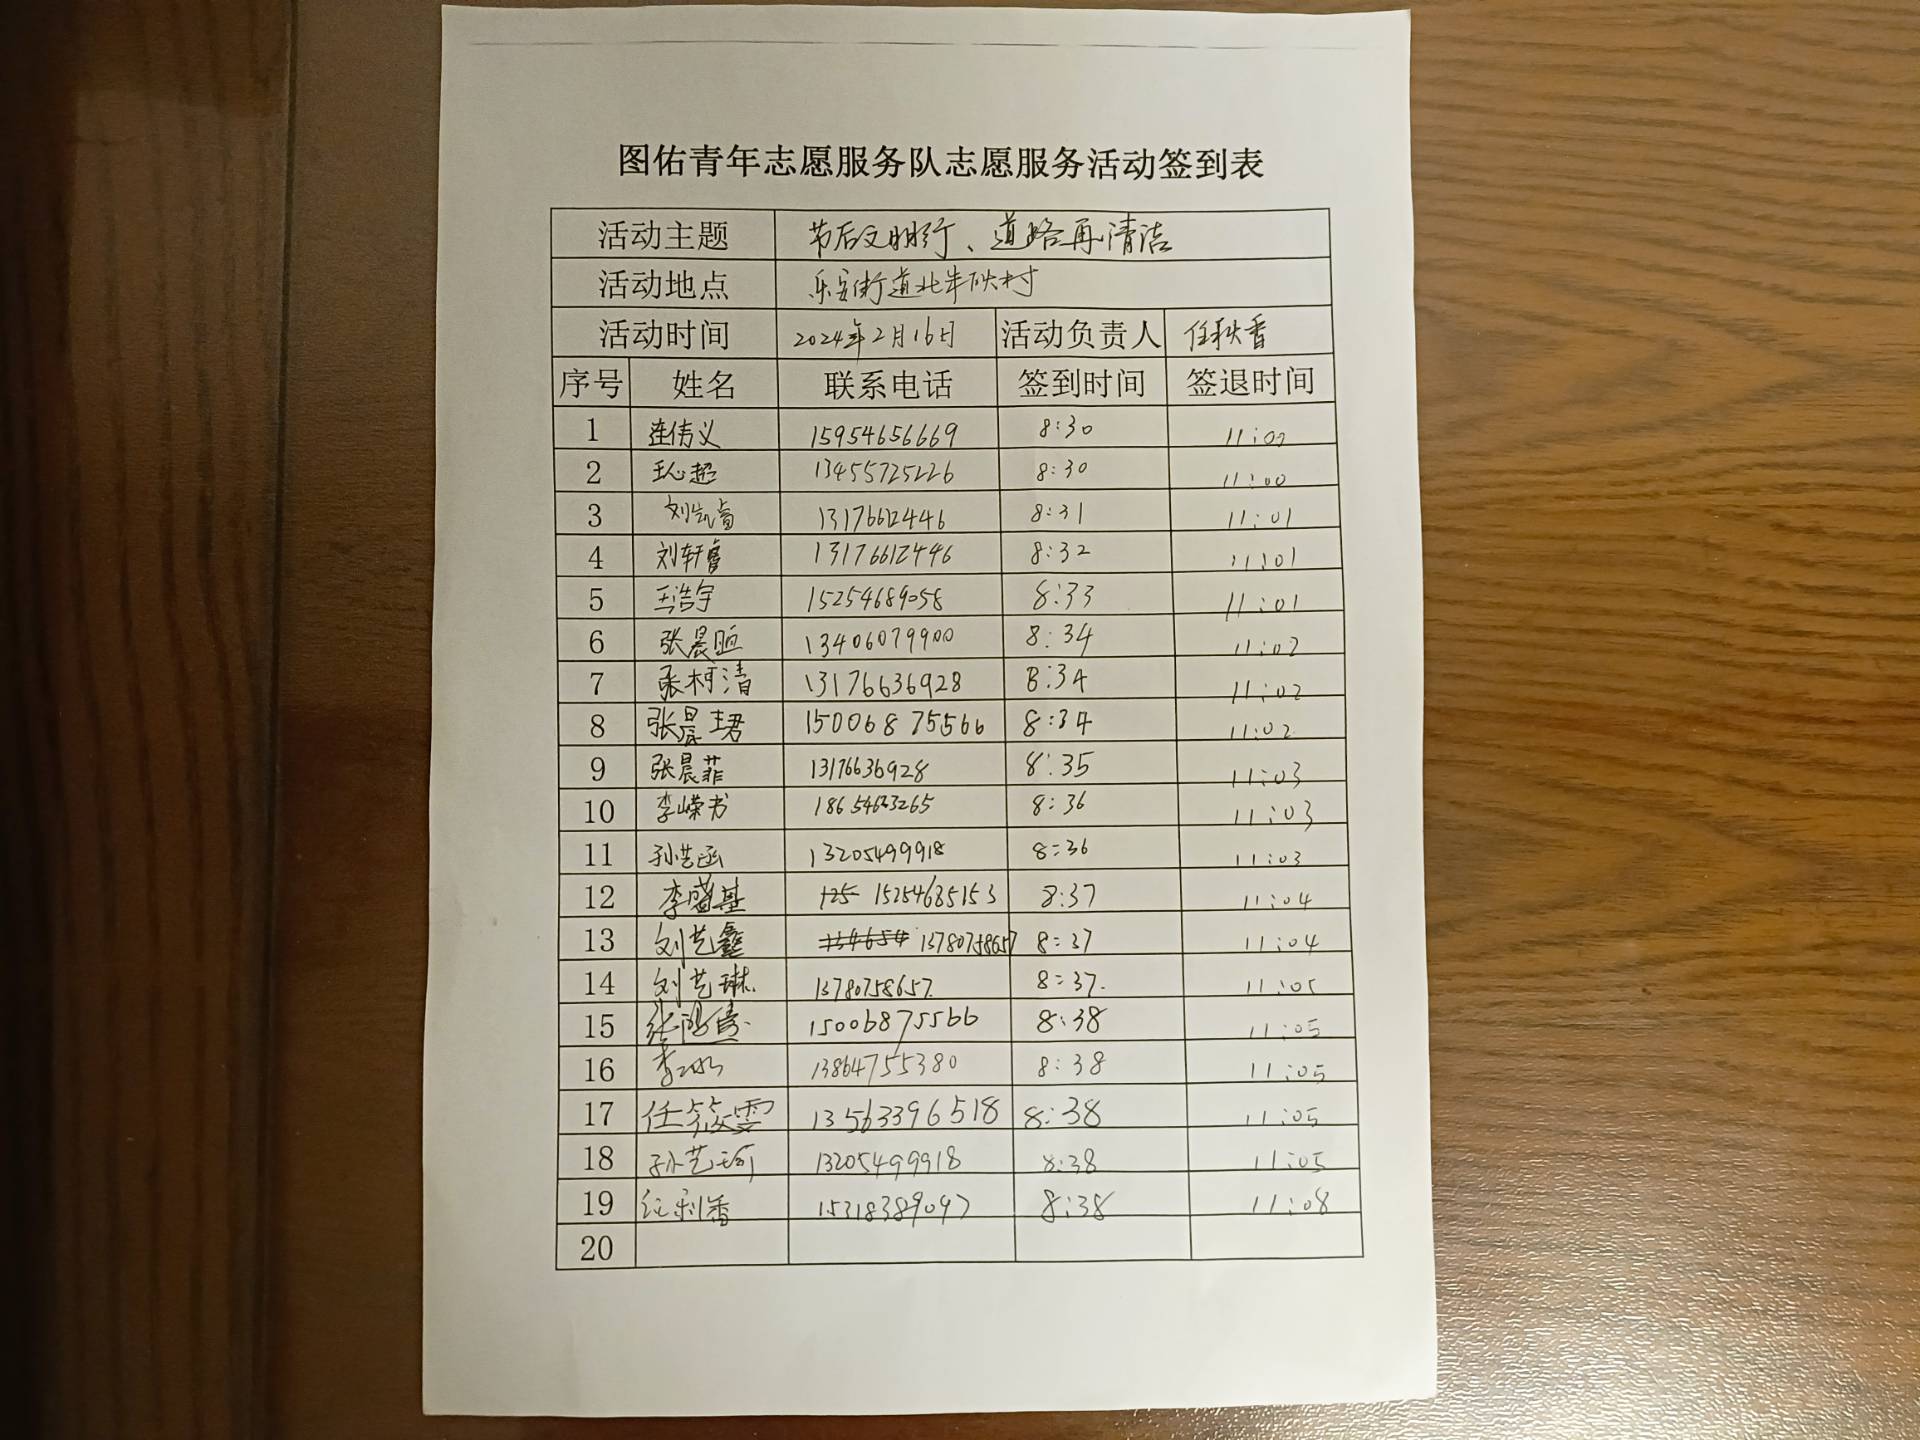 图佑青年志愿服务队志愿服务活动签到表
活动主题 节后文明行、道路再清洁
活动地点 乐安街道北牟村
活动时间 2024年2月16日 活动负责人 任秋香
序号 姓名 联系电话 签到时间 签退时间
1 连倩义 15954656669 8:30 11:00
2 王心超 13455725226 8:30 11:00
3 刘凯睿 13176612446 8:31 11:01
4 刘轩睿 13176612446 8:32 11:01
5 王浩宇 15254689058 8:33 11:01
6 张晨暄 13406079900 8:34 11:02
7 张柯清 13176636928 8:34 11:02
8 张晨珺 15006875566 8:34 11:02
9 张晨菲 13176636928 8:35 11:03
10 李嵘书 18654633265 8:36 11:03
11 孙艺函 13205499918 8:36 11:03
12 李盛基 15254685153 8:37 11:04
13 刘艺鑫 13780758657 8:37 11:04
14 刘艺琳 13780758657. 8:37. 11:05
15 张鸿 15006875566 8:38 11:05
16 李冰 13864755380 8:38 11:05
17 任筱雯 13563396518 8:38 11:05
18 孙艺珂 13205499918 8:38 11:05
19 利香 15318389097 8:38 11:08
20